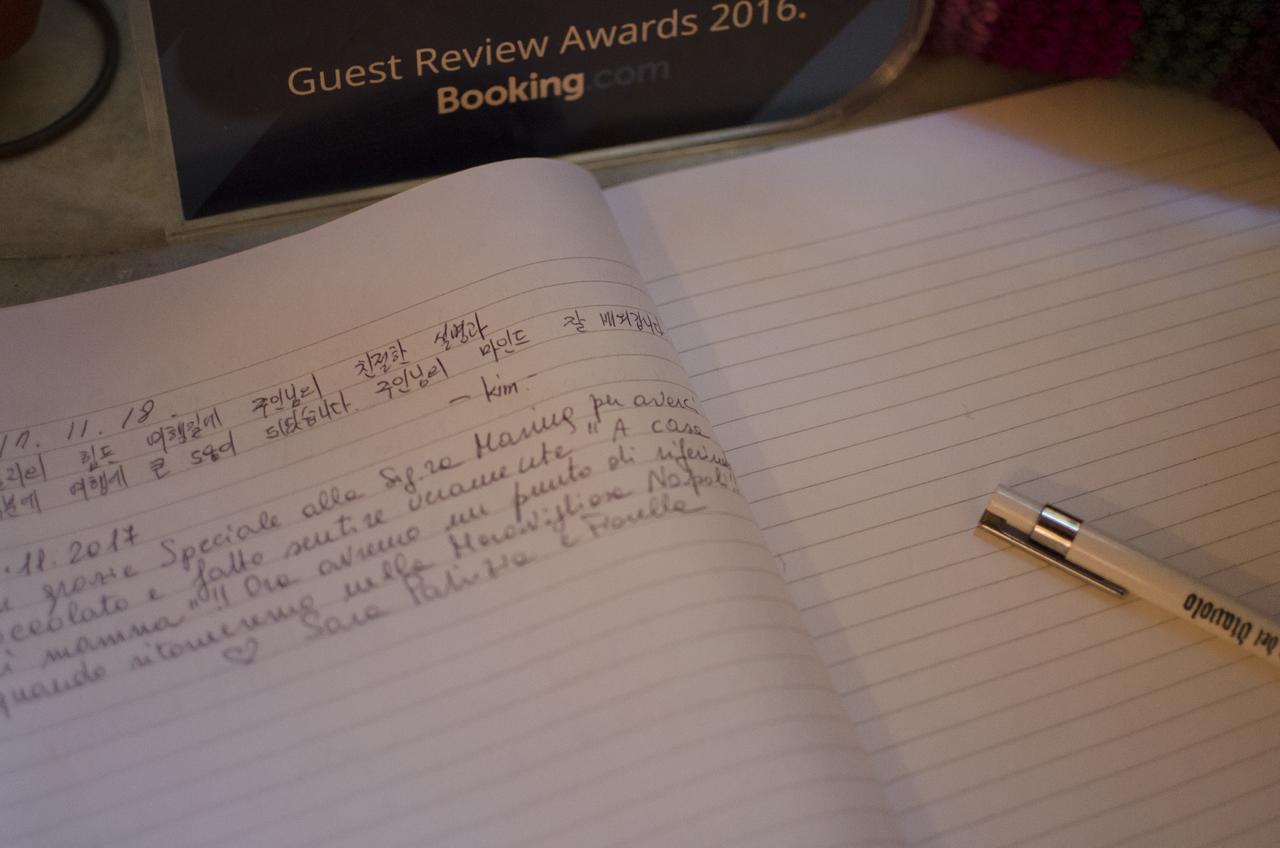 Guest Review Awards 2016.
Booking.com
17. 11. 18.
힘든 여행길에 주인님의 친절한 설명과
여행에 큰 도움이 되었습니다. 주인님의 마인드 잘 배워갑니다
- kim -
.11.2017
grazie Speciale alla Sig.ra per averci
e fatto sentire veramente "A casa
di mamma"!! Ora avremo un punto di riferim
quando ritorneremo nella Meravigliosa Napoli!!
♡ Sara Patrizia e Fiorella
del Diavolo